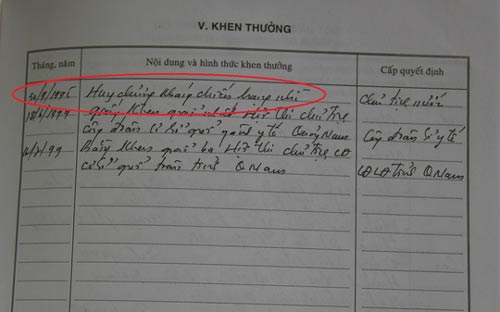 V. KHEN THƯỞNG
Tháng, năm Nội dung và hình thức khen thưởng Cấp quyết định
Huy chương kháng chiến hạng nhì Chủ tịch nước
giấy khen giải nhất Hội thi chủ tịch
Công đoàn cơ sở giỏi ngành y tế Quảng Nam Công đoàn Sở y tế
Bằng khen giải ba Hội thi chủ tịch CĐ
cơ sở giỏi toàn tỉnh Q Nam LĐLĐ tỉnh Q Nam